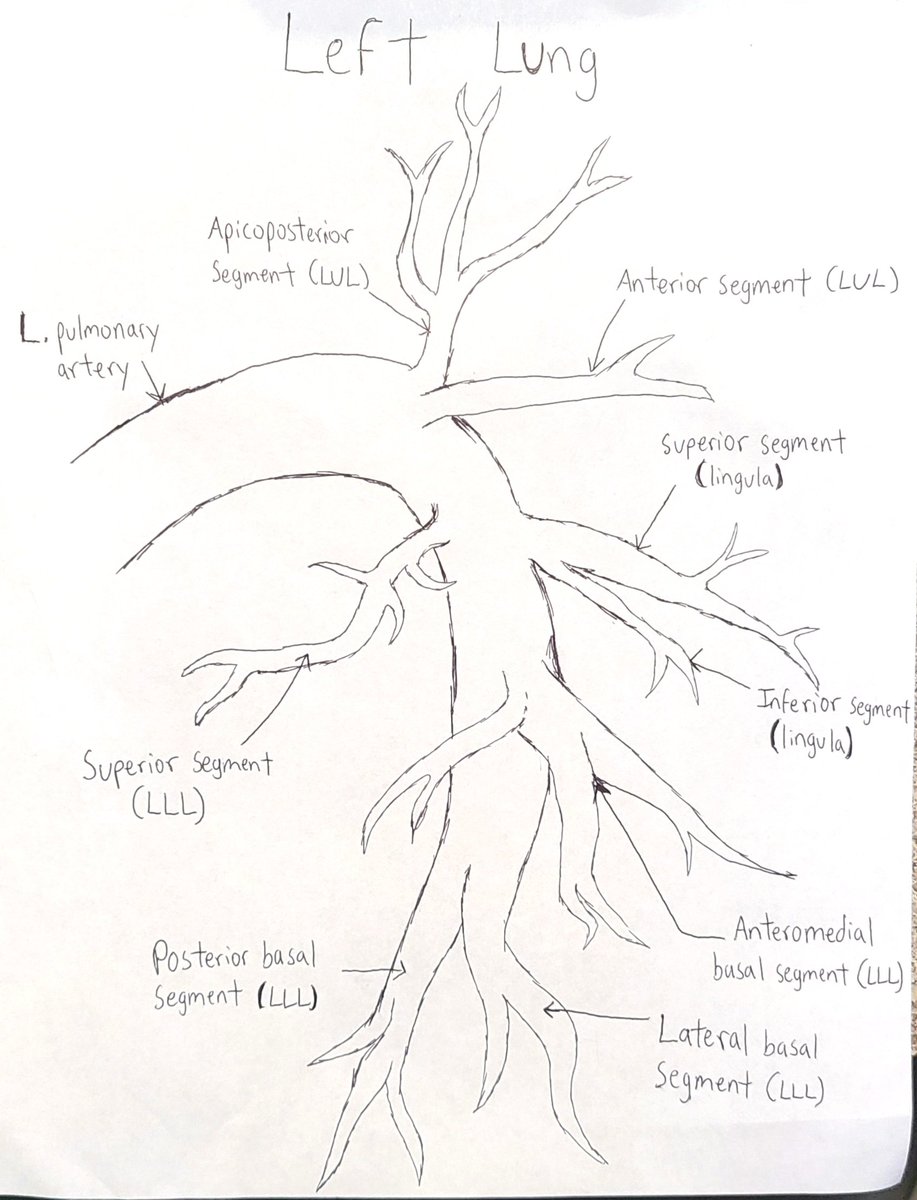 Left Lung
Apicoposterior
Segment (LUL)
Anterior segment (LUL)
L. pulmonary
artery
Superior segment
(lingula)
Inferior segment
(lingula)
Superior segment
(LLL)
Anteromedial
basal segment (LLL)
Posterior basal
Segment (LLL)
Lateral basal
Segment (LLL)